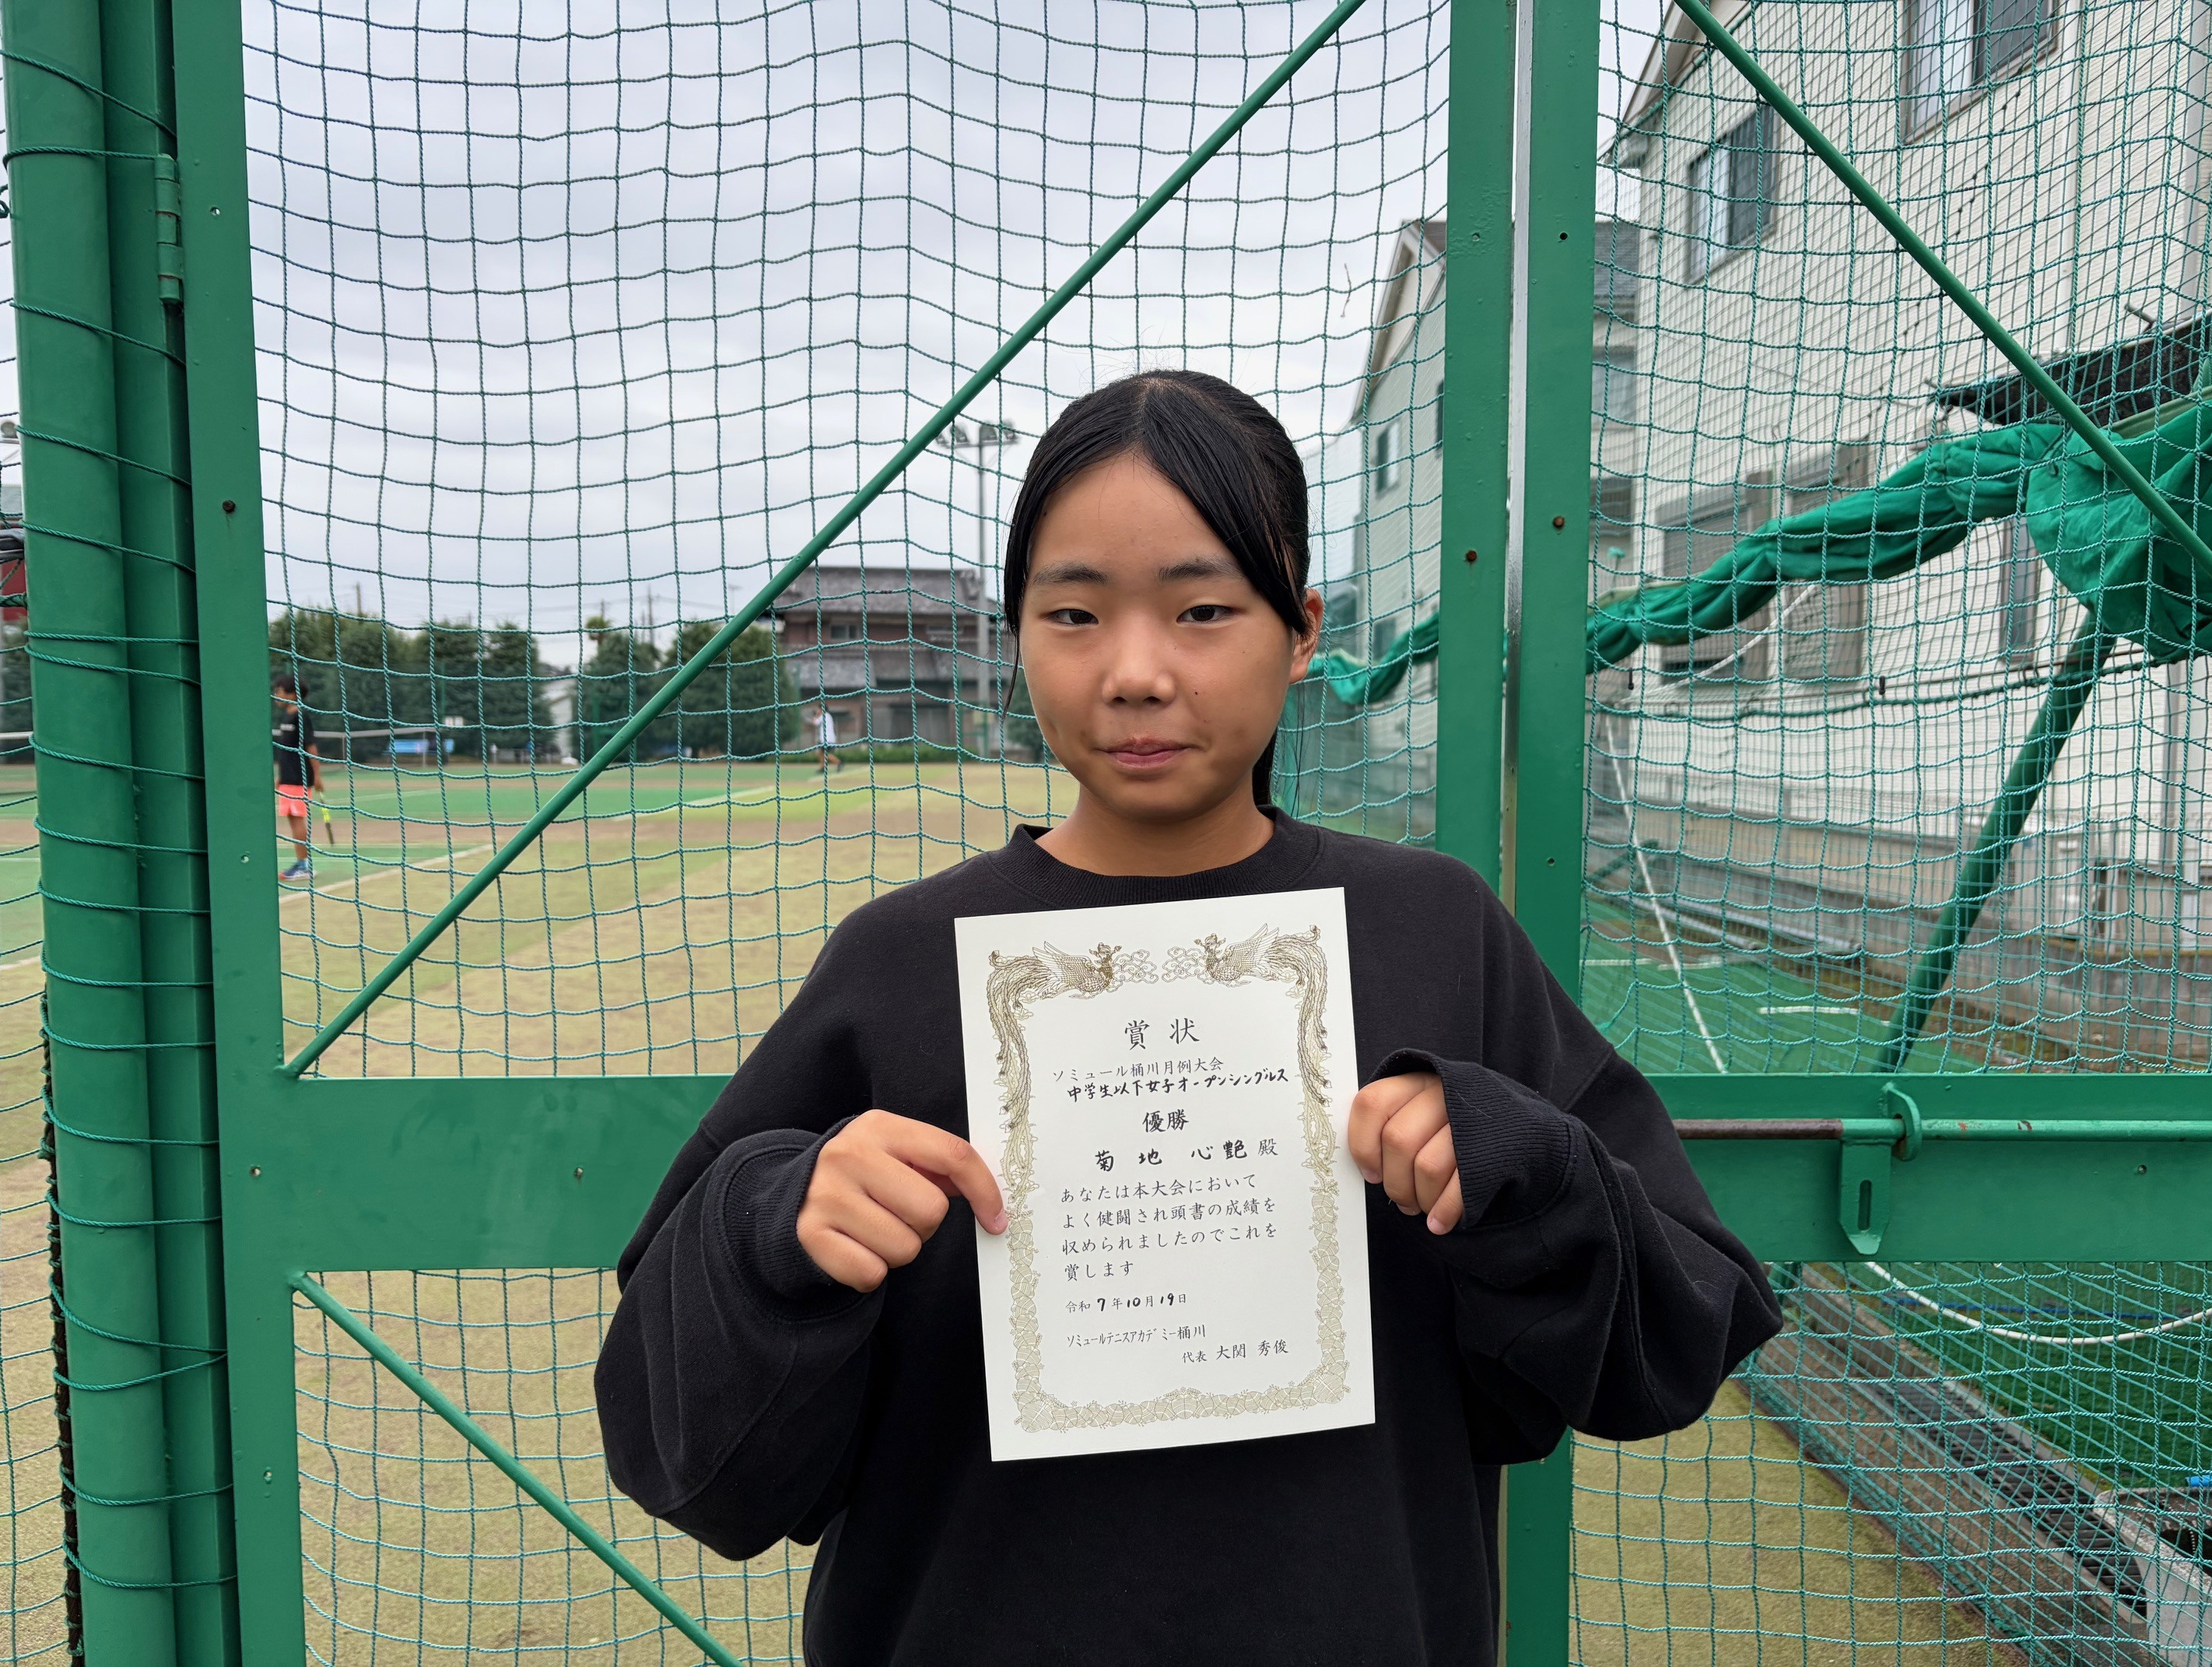 賞状
ソミュール桶川月例大会
中学生以下女子オープンシングルス
優勝
菊地 心艶 殿
あなたは本大会において
よく健闘され頭書の成績を
収められましたのでこれを
賞します
令和7年10月19日
ソミュールテニスアカデミー桶川
代表 大関 秀俊